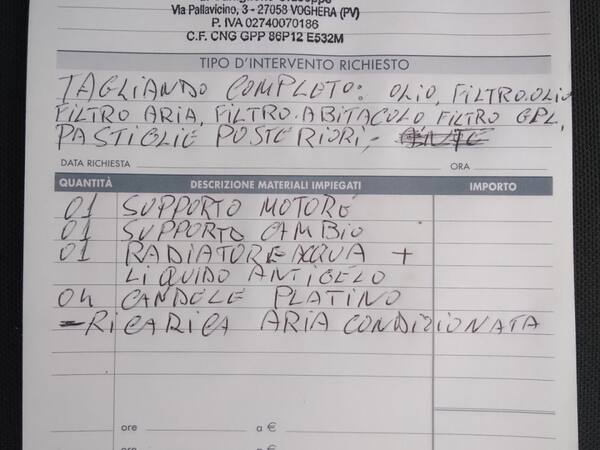 Via Pallavicino, 3 - 27058 VOGHERA (PV)
P. IVA 02740070186
C.F. CNG GPP 86P12 E532M
TIPO D'INTERVENTO RICHIESTO
TAGLIANDO COMPLETO: OLIO, FILTRO OLIO
FILTRO ARIA, FILTRO ABITACOLO FILTRO GPL,
PASTIGLIE POSTERIORI,
DATA RICHIESTA ORA
QUANTITÀ DESCRIZIONE MATERIALI IMPIEGATI IMPORTO
01 SUPPORTO MOTORE
01 SUPPORTO CAMBIO
01 RADIATORE ACQUA +
LIQUIDO ANTIGELO
04 CANDELE PLATINO
- RICARICA ARIA CONDIZIONATA
ore a €
ore a €